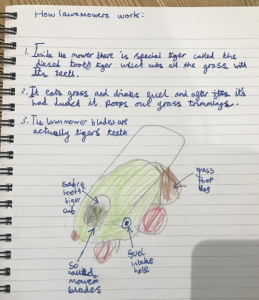 How lawnmowers work:
1. Inside the mower there is special tiger called the
diesel tooth tiger which cuts all the grass with
its teeth.
2. It eats grass and drinks fuel and after it's
had lunch it poops out grass trimmings.
3. The lawnmower blades are
actually tigers teeth
Sabre
tooth
tiger
cub
grass
poop
bag
So
called
mower
blades
fuel
intake
hole